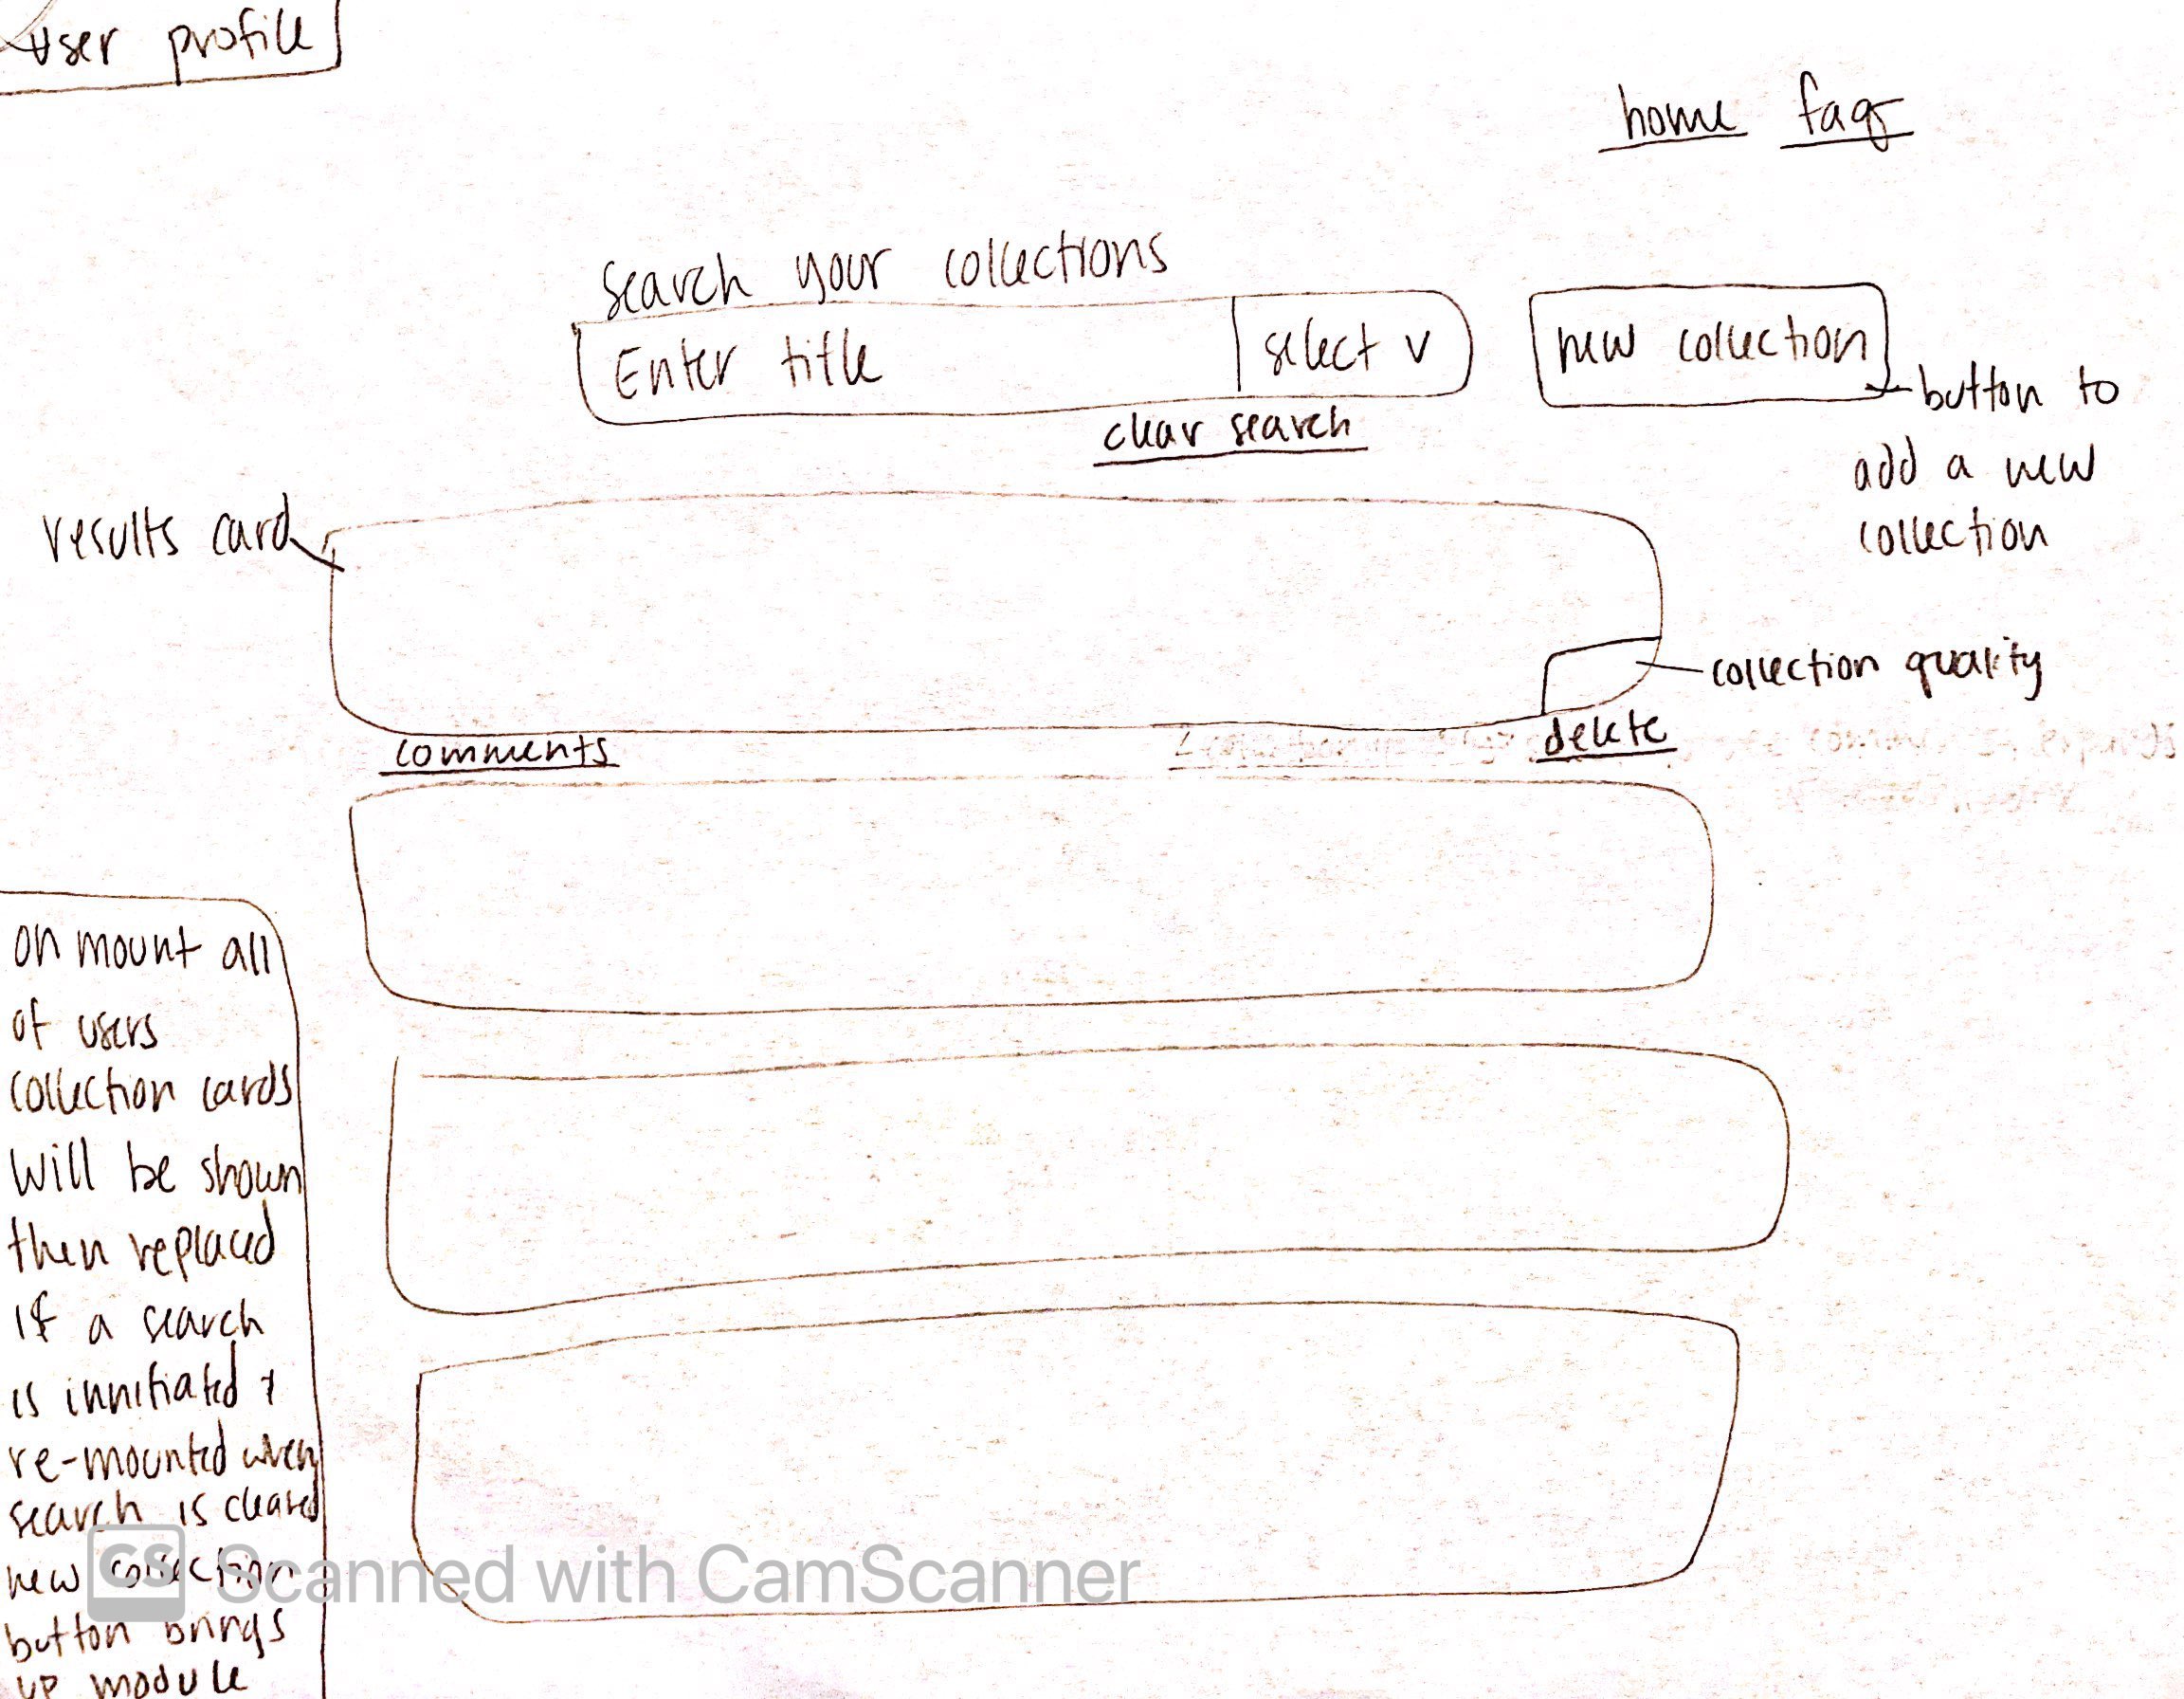 user profile
home faqs
search your collections
Enter title
select v
new collection
clear search
button to
add a new
collection
results card
collection quality
comments
delete
on mount all
of users
collection cards
will be shown
then replaced
if a search
is innitiated +
re-mounted when
search is cleared
new collection
button brings
up module
CS Scanned with CamScanner